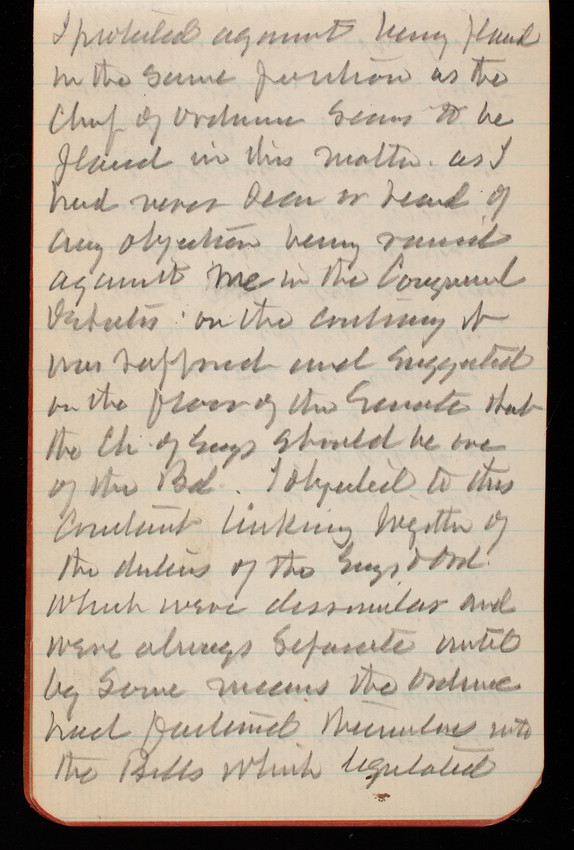 I protested against being placed
in the same position as the
Chief of Ordnance seems to be
placed in this matter. as I
had never seen or heard of
any objection being raised
against me in the Congressional
Debates. on the contrary it
was supposed and suggested
on the floor of the Senate that
the Ch of Engs should be one
of the Bd. I objected to this
constant linking together of
the duties of the Engs & Ord.
which were dissimilar and
were always separate until
by some means the Ordnance
had fastened themselves into
the Bills which legislated